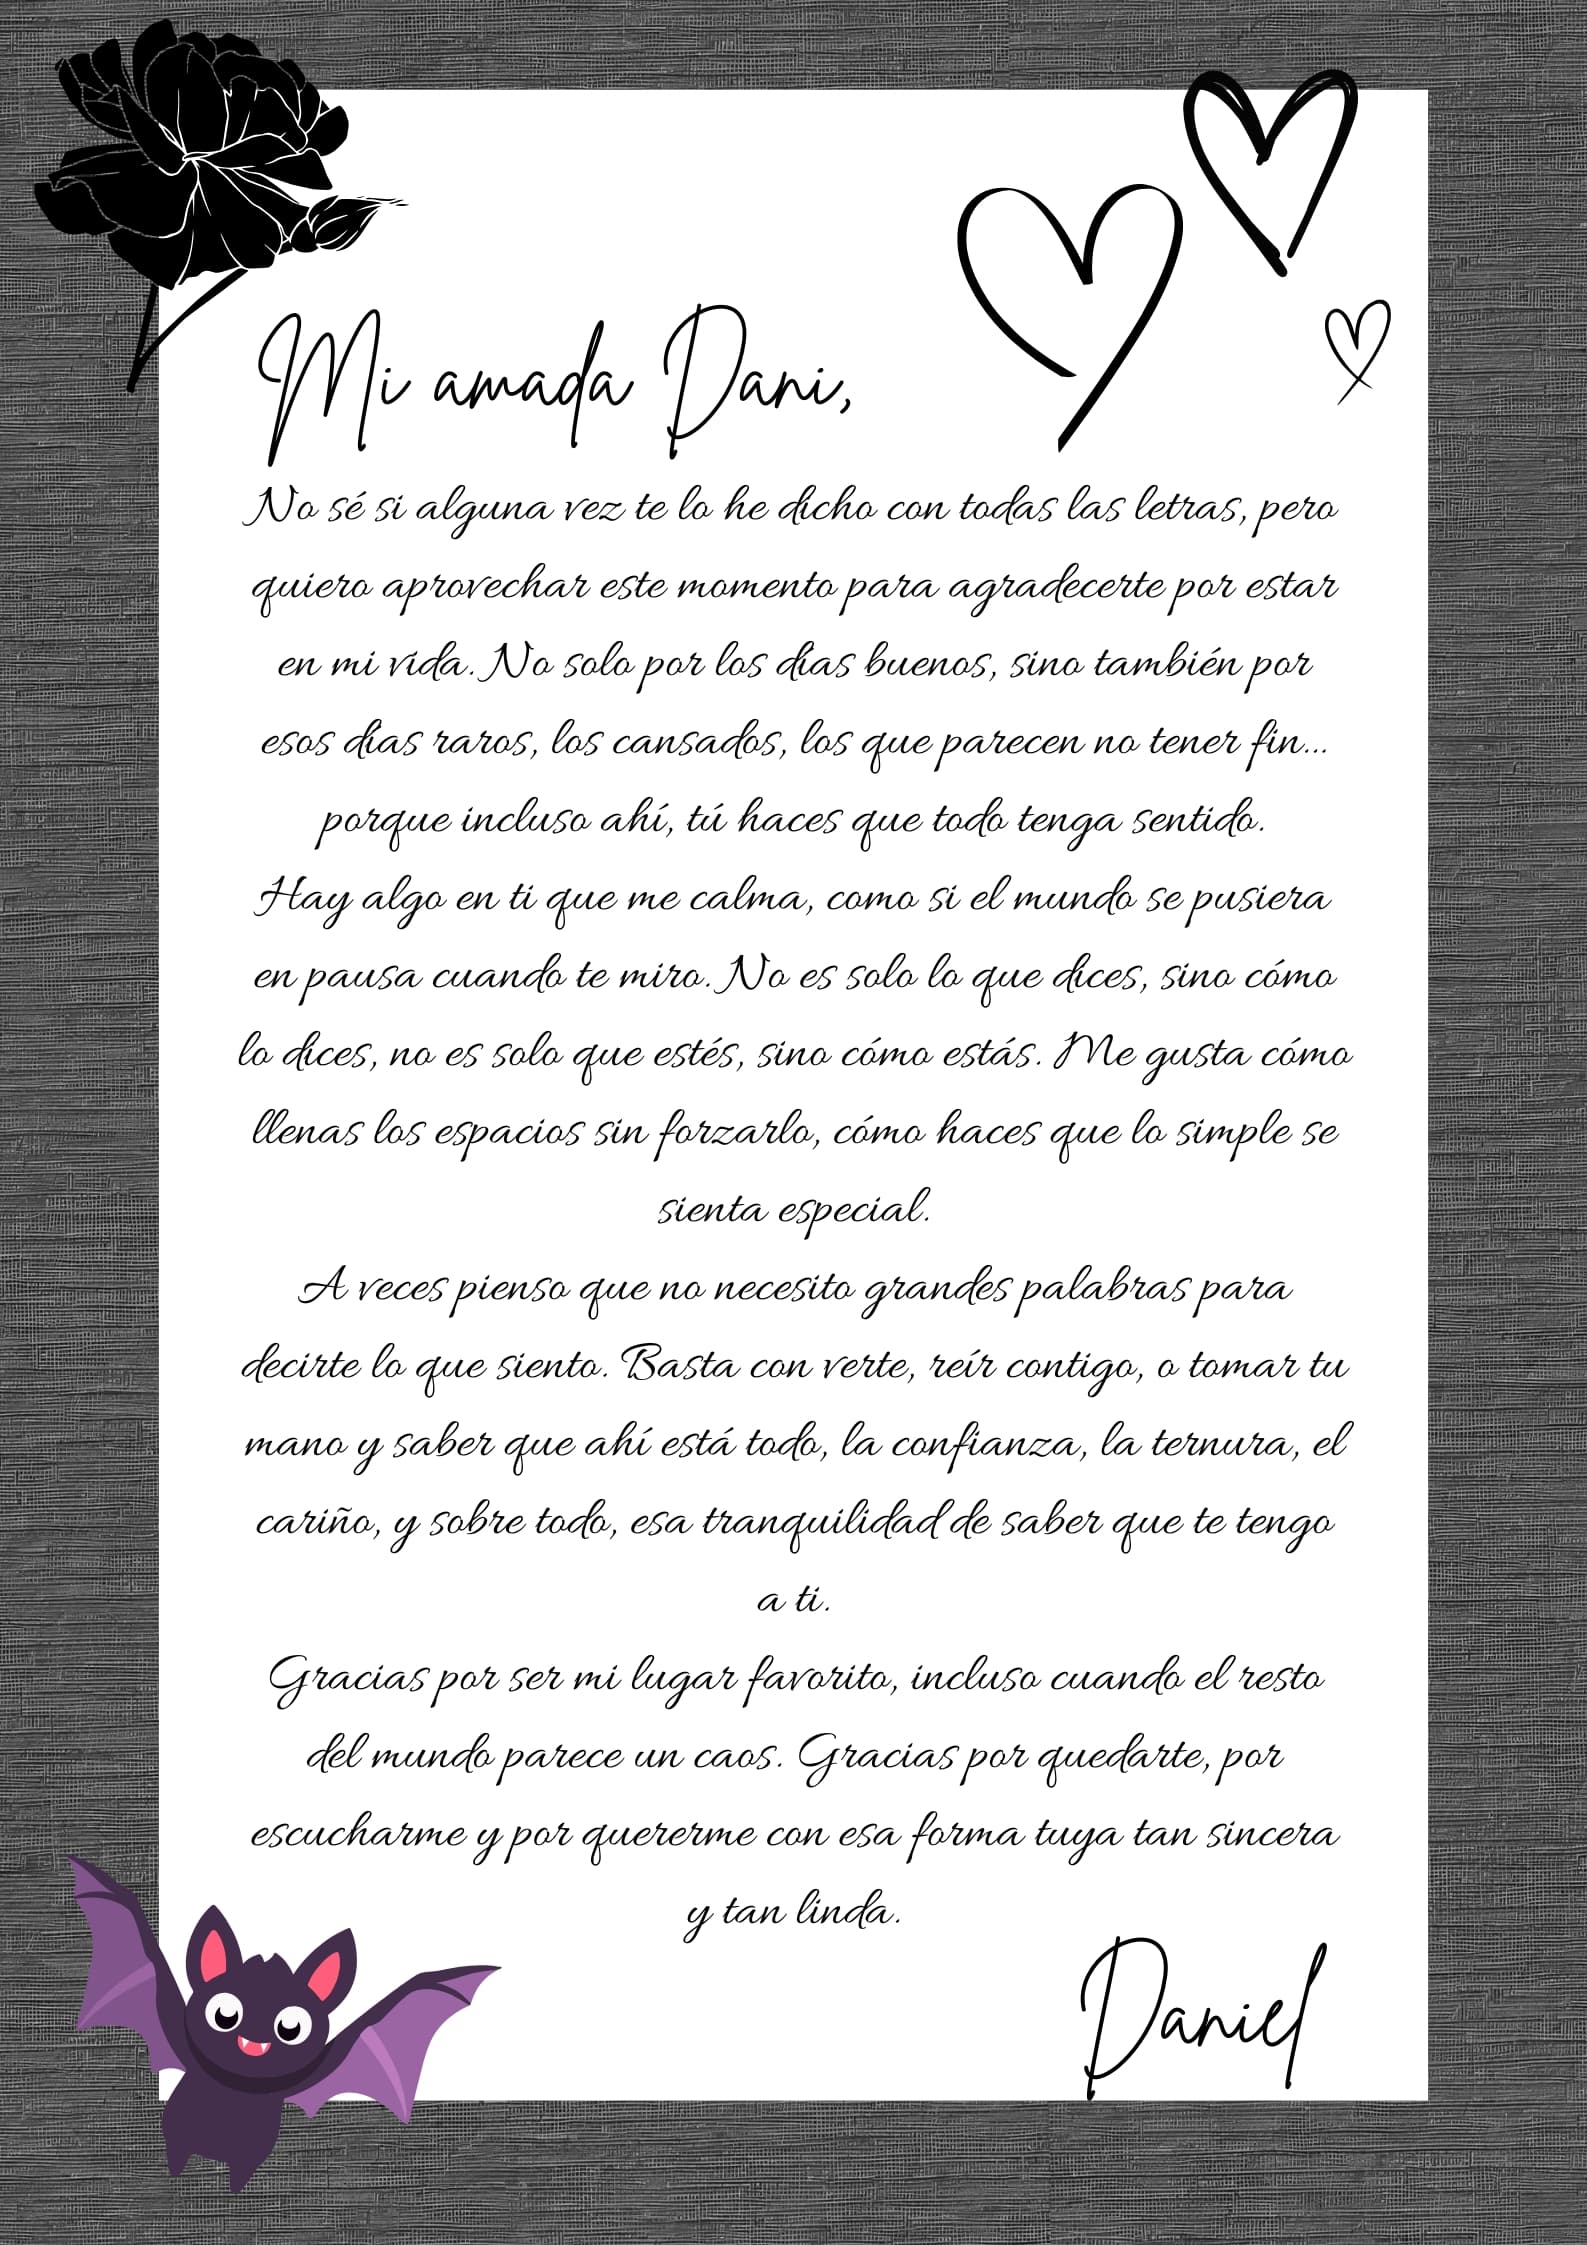 Mi amada Dani,
No sé si alguna vez te lo he dicho con todas las letras, pero
quiero aprovechar este momento para agradecerte por estar
en mi vida. No solo por los días buenos, sino también por
esos días raros, los cansados, los que parecen no tener fin...
porque incluso ahí, tú haces que todo tenga sentido.
Hay algo en ti que me calma, como si el mundo se pusiera
en pausa cuando te miro. No es solo lo que dices, sino cómo
lo dices, no es solo que estés, sino cómo estás. Me gusta cómo
llenas los espacios sin forzarlo, cómo haces que lo simple se
sienta especial.
A veces pienso que no necesito grandes palabras para
decirte lo que siento. Basta con verte, reír contigo, o tomar tu
mano y saber que ahí está todo, la confianza, la ternura, el
cariño, y sobre todo, esa tranquilidad de saber que te tengo
a ti.
Gracias por ser mi lugar favorito, incluso cuando el resto
del mundo parece un caos. Gracias por quedarte, por
escucharme y por quererme con esa forma tuya tan sincera
y tan linda.
Daniel